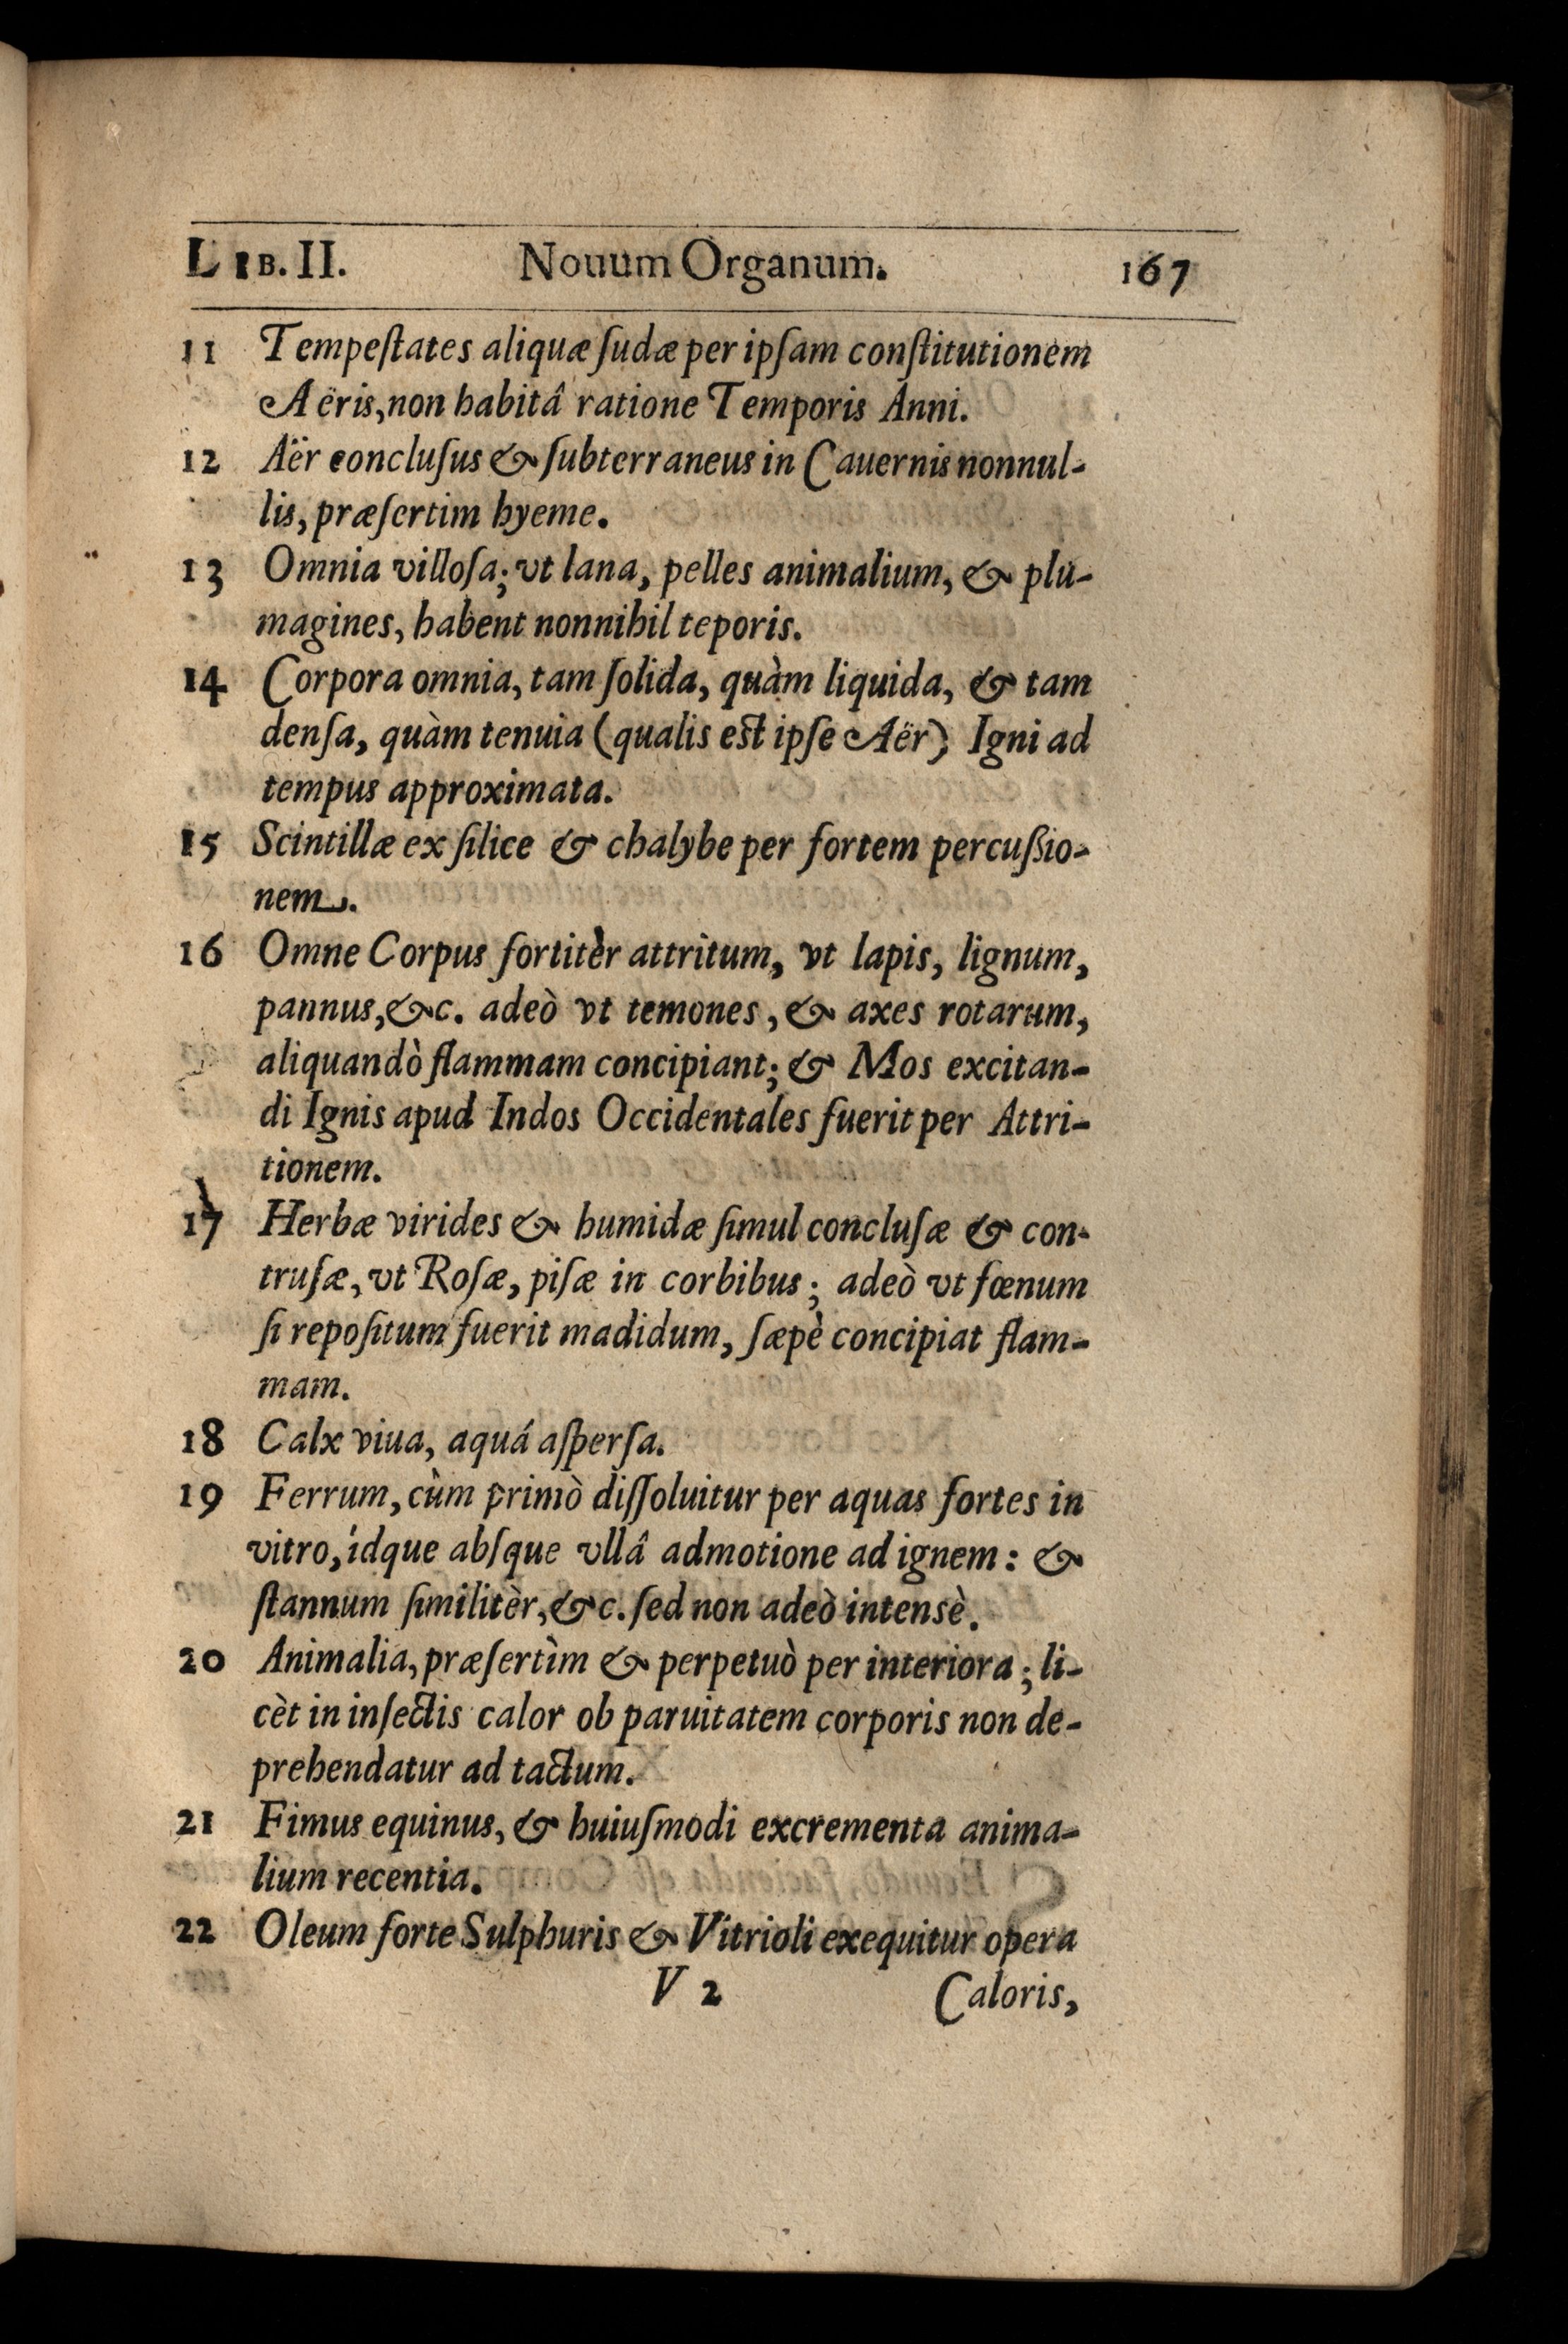 LIB. II. Nouum Organum. 167
11 Tempeſtates aliquæ ſudæ per ipſam conſtitutionem
Aëris, non habitâ ratione Temporis Anni.
12 Aër concluſus & ſubterraneus in Cauernis nonnul-
lis, præſertim hyeme.
13 Omnia villoſa; vt lana, pelles animalium, & plu-
magines, habent nonnihil teporis.
14 Corpora omnia, tam ſolida, quàm liquida, & tam
denſa, quàm tenuia (qualis eſt ipſe Aër) Igni ad
tempus approximata.
15 Scintillæ ex ſilice & chalybe per fortem percuſsio-
nem.
16 Omne Corpus fortitèr attritum, vt lapis, lignum,
pannus, &c. adeò vt temones, & axes rotarum,
aliquandò flammam concipiant; & Mos excitan-
di Ignis apud Indos Occidentales fuerit per Attri-
tionem.
17 Herbæ virides & humidæ ſimul concluſæ & con-
truſæ, vt Roſæ, piſæ in corbibus; adeò vt fœnum
ſi repoſitum fuerit madidum, ſæpè concipiat flam-
mam.
18 Calx viua, aquá aſperſa.
19 Ferrum, cùm primò diſſoluitur per aquas fortes in
vitro, idque abſque vllâ admotione ad ignem: &
ſtannum ſimilitèr, &c. ſed non adeò intensè.
20 Animalia, præſertìm & perpetuò per interiora; li-
cèt in inſectis calor ob paruitatem corporis non de-
prehendatur ad tactum.
21 Fimus equinus, & huiuſmodi excrementa anima-
lium recentia.
22 Oleum forte Sulphuris & Vitrioli exequitur opera
V 2 Caloris,